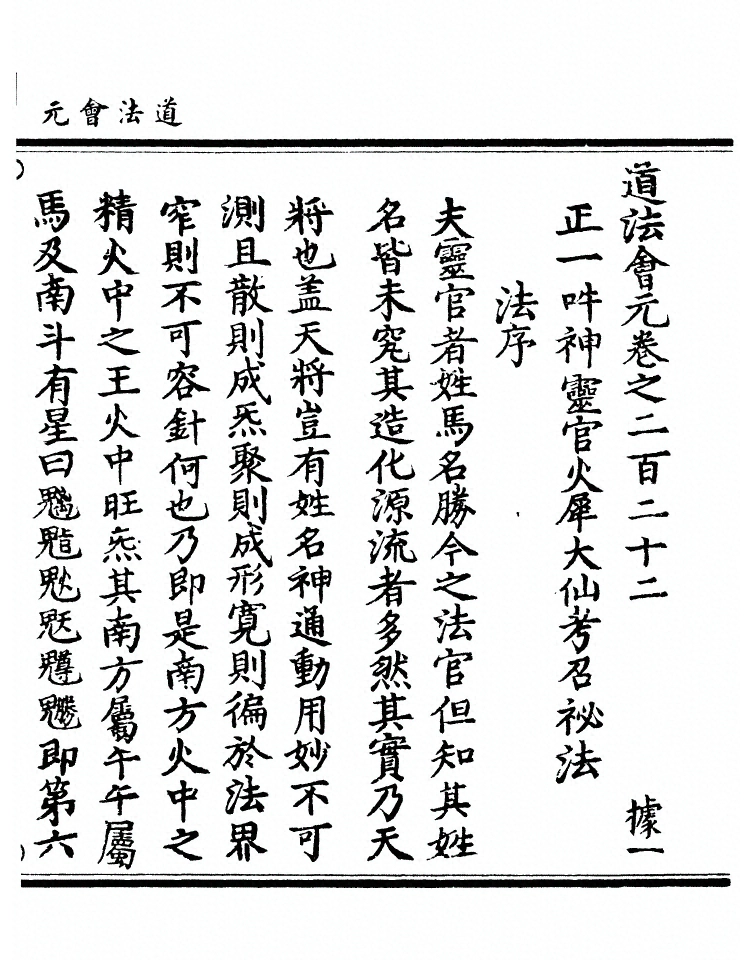 道法會元
道法會元卷之二百二十二 據一
正一吽神靈官火犀大仙考召祕法
法序
夫靈官者姓馬名勝今之法官但知其姓
名皆未究其造化源流者多然其實乃天
將也盖天將豈有姓名神通動用妙不可
測且散則成炁聚則成形寬則徧於法界
窄則不可容針何也乃即是南方火中之
精火中之王火中旺炁其南方屬午午屬
馬及南斗有星曰即第六